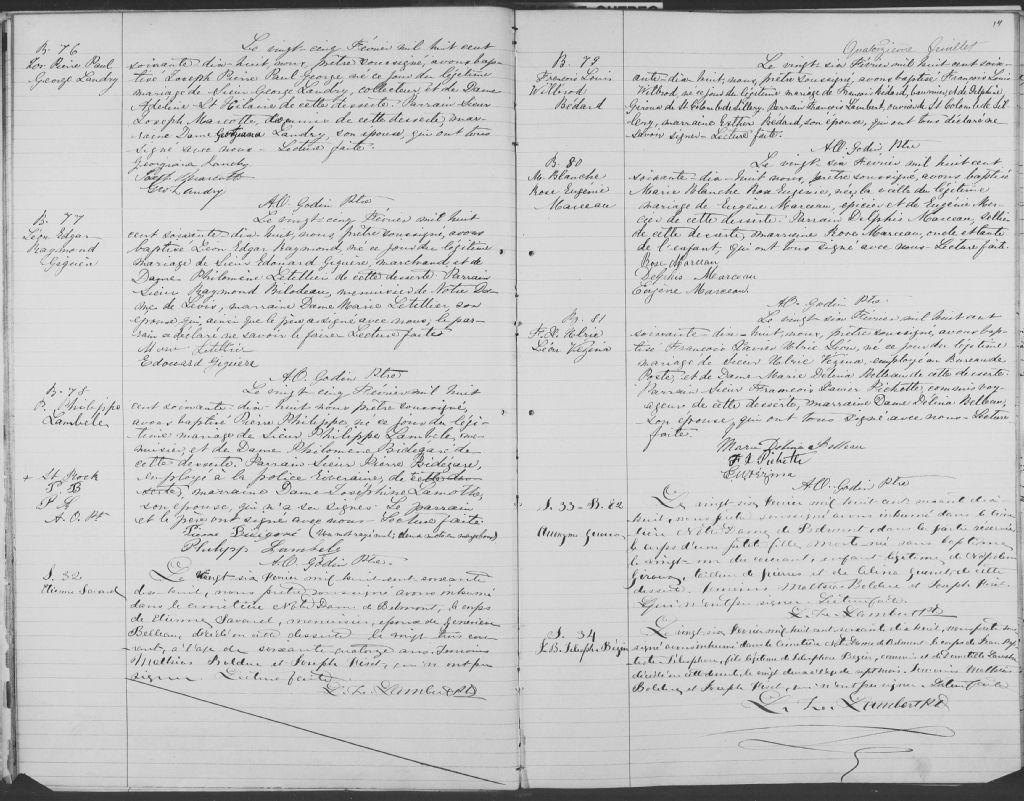 B. 76
Jos. Pierre Paul
George Landry
Le vingt-cinq Février mil huit cent
soixante-dix-huit, nous, prêtre soussigné, avons bap-
tisé Joseph Pierre Paul George, né ce jour du légitime
mariage de Sieur George Landry, collecteur, et de Dame
Adeline St Hilaire de cette desserte. Parrain Sieur
Joseph Marcotte, de cette desserte, mar-
raine Dame Georgiana Landry, son épouse, qui ont tous
signé avec nous. Lecture faite.
Georgiana Landry
Joseph Marcotte
Geo Landry
A.O. Godin Ptre
B. 77
Léon Edgar
Raymond
Giguère
Le vingt-cinq Février mil huit
cent soixante-dix-huit, nous, prêtre soussigné, avons
baptisé Léon Edgar Raymond, né ce jour du légitime
mariage de Sieur Edouard Giguère, marchand, et de
Dame Philomène Letellier de cette desserte. Parrain
Sieur Raymond Bilodeau, menuisier de Notre Da-
me de Lévis, marraine Dame Marie Letellier, son
épouse qui ainsi que le père a signé avec nous; le par-
rain a déclaré ne savoir le faire. Lecture faite
Letellier
Edouard Giguère
A.O. Godin Ptre
B. 78
P. Philippe
Lambete
Le vingt-cinq Février mil huit
cent soixante-dix-huit nous prêtre soussigné,
avons baptisé Pierre Philippe, né ce jour du légi-
time mariage de Sieur Philippe Lambete, me-
nuisier, et de Dame Philomène Bidégaré de
cette desserte. Parrain Sieur Pierre Bidégaré,
employé à la police Riveraine, de cette des-
serte, marraine Dame Joséphine Lamothe,
son épouse, qui n'a su signer. Le parrain
et le père ont signé avec nous. Lecture faite
+ St Rock
P. B
P. L
A. O. Pt
Pierre
Philipp Lambety
A.O. Godin Ptre
S. 32
Etienne Savard
Le vingt six février mil huit cent soixante
dix-huit, nous prêtre soussigné avons inhumé
dans le cimetière Notre Dame de Belmont, le corps
de Etienne Savard, menuisier, époux de Geneviève
Belleau, décédé en cette desserte le vingt trois cou-
rant, à l'âge de soixante-quatorze ans. Témoins
Mathias Bolduc et Joseph qui n'ont pu
signer. Lecture faite
L. H. Lambert Pt
14
Quatorzième feuillet
B. 79
François Louis
Wilbrod
Bédard
Le vingt six Février mil huit cent soix-
ante-dix-huit, nous, prêtre soussigné, avons baptisé François Louis
Wilbrod, né ce jour du légitime mariage de François Bédard, ouvrier, et de Delphine
de St Colomb de Sillery. Parrain François Lambert, ouvrier de St Colomb de Sil-
lery, marraine Esther Bédard, son épouse, qui ont tous déclaré ne
savoir signer. Lecture faite.
A.O. Godin Ptre
B. 80
M. Blanche
Rose Eugénie
Marceau
Le vingt six Février mil huit cent
soixante-dix-huit nous, prêtre soussigné, avons baptisé
Marie Blanche Rose Eugénie, née la veille du légitime
mariage de Eugène Marceau, épicier et de Eugénie Mer-
cier de cette desserte. Parrain Delphis Marceau, sellier
de cette desserte, marraine Rose Marceau, oncle et tante
de l'enfant, qui ont tous signé avec nous. Lecture faite
Rose Marceau
Delphis Marceau
Eugène Marceau
A.O. Godin Ptre
B. 81
F. X. Ulric
Léon Vézina
Le vingt six Février mil huit cent
soixante-dix-huit, nous, prêtre soussigné, avons bap-
tisé François Xavier Ulric Léon, né ce jour du légitime
mariage de Sieur Ulric Vézina, employé au Bureau de
Poste, et de Dame Marie Délina Belleau de cette desserte.
Parrain Sieur François Xavier Pichette, commis voy-
ageur de cette desserte, marraine Dame Délina Belleau,
son épouse, qui ont tous signé avec nous. Lecture
faite.
Marie Délina Belleau
F X Pichette
Vézina
A.O. Godin Ptre
S. 33 - B. 82
Anonyme
Le vingt six février mil huit cent soixante dix-
huit, nous prêtre soussigné avons inhumé dans le cime-
tière Notre Dame de Belmont, dans la partie réservée
le corps d'une petite fille, morte née sans baptême
le vingt un du courant, enfant légitime de Napoléon
et de Célina de cette
desserte. Témoins Mathias Bolduc et Joseph
qui n'ont pu signer. Lecture faite
L. H. Lambert Pt
S. 34
J. B. Télesph. Bégin
Le vingt six février mil huit cent soixante dix huit, nous prêtre sous-
signé avons inhumé dans le cimetière Notre Dame de Belmont le corps de Jean Bap-
tiste Télesphore, fils légitime de Télesphore Bégin, commis, et de
décédé en cette desserte, le vingt deux à l'âge de sept mois. Témoins Mathias
Bolduc, et Joseph qui n'ont pu signer. Lecture faite
L. H. Lambert Pt